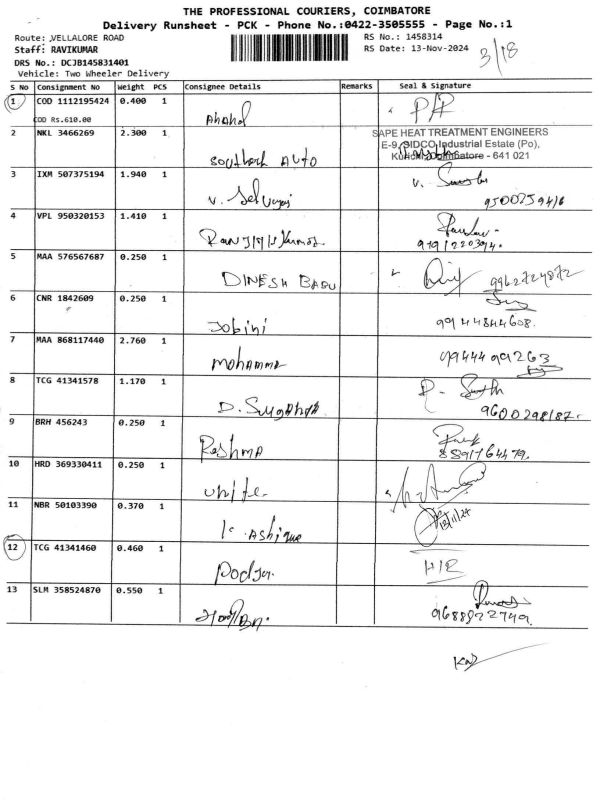 THE PROFESSIONAL COURIERS, COIMBATORE
Delivery Runsheet - PCK - Phone No.:0422-3505555 - Page No.:1
Route: VELLALORE ROAD
RS No.: 1458314
3/18
Staff: RAVIKUMAR
RS Date: 13-Nov-2024
DRS No.: DCJB145831401
Vehicle: Two Wheeler Delivery
S No Consignment No Weight PCS Consignee Details Remarks Seal & Signature
1 COD 1112195424 0.400 1
COD Rs.610.00
2 NKL 3466269 2.300 1 Southern Auto
SAPE HEAT TREATMENT ENGINEERS
E-9, SIDCO Industrial Estate (Po),
Coimbatore - 641 021
3 IXM 507375194 1.940 1 V.
4 VPL 950320153 1.410 1
5 MAA 576567687 0.250 1 DINESH BABU 9962724872
6 CNR 1842609 0.250 1 Jobini 9944844608.
7 MAA 868117440 2.760 1 Mohamma 9944499263
8 TCG 41341578 1.170 1 D. 9600298187.
9 BRH 456243 0.250 1 Reshma 8591764479.
10 HRD 369330411 0.250 1 Unite
11 NBR 50103390 0.370 1 13/11/24
12 TCG 41341460 0.460 1
13 SLM 358524870 0.550 1 9688922749.